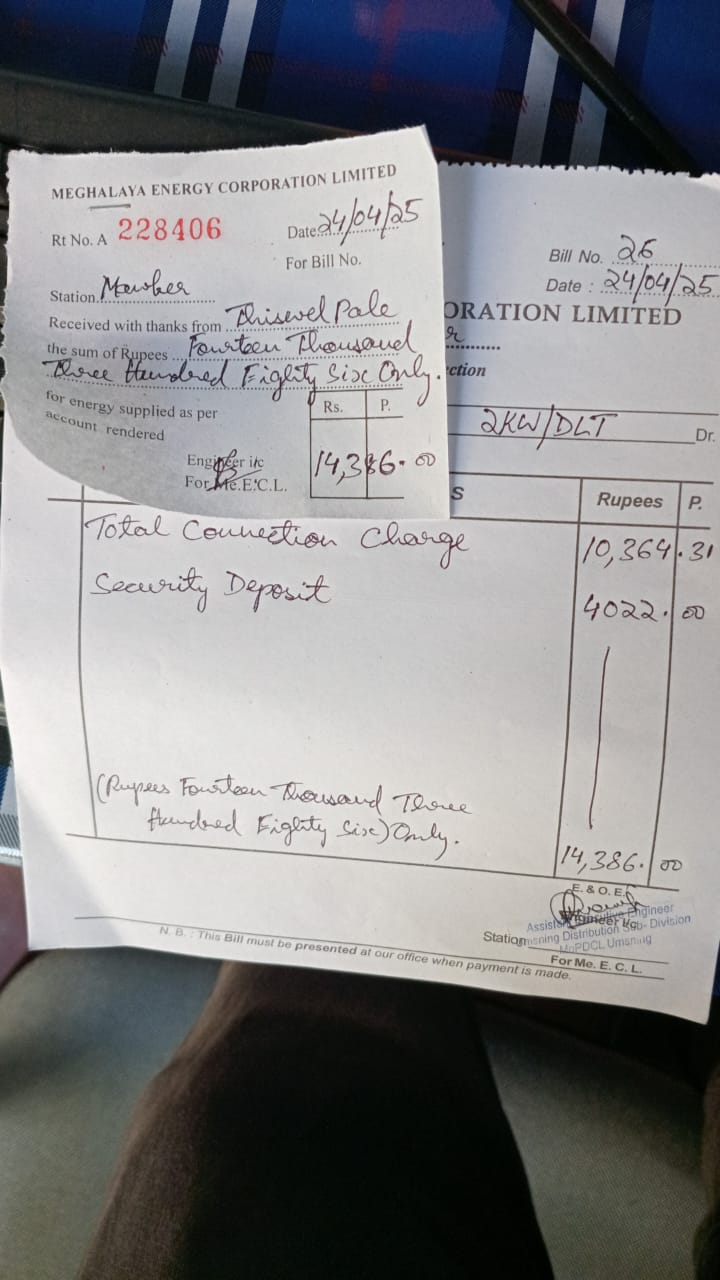 MEGHALAYA ENERGY CORPORATION LIMITED
Rt No. A 228406
Date 24/04/25
For Bill No.
Station Mawber
Received with thanks from Thisevel Pale
the sum of Rupees Fourteen Thousand
Three Hundred Eighty Six Only.
for energy supplied as per
account rendered
Rs. P.
14,386.00
Engineer i/c
For Me.E.C.L.
Bill No. 26
Date : 24/04/25
ORATION LIMITED
r
ction
2KW/DLT Dr.
S Rupees P.
Total Connection Charge 10,364.31
Security Deposit 4022.00
(Rupees Fourteen Thousand Three
Hundred Eighty Six) Only.
14,386.00
E. & O. E.
Engineer
Station
Umsning Distribution Sub-Division
MePDCL Umsning
For Me. E. C. L.
N. B. : This Bill must be presented at our office when payment is made.